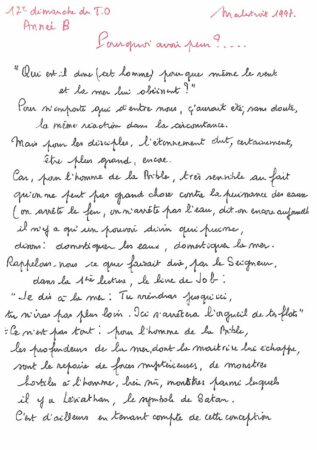 12e dimanche du T.O
Malestroit 1997.
Année B
Pourquoi avoir peur ?....
"Qui est-il donc (cet homme) pour que même le vent
et la mer lui obéissent ?"
Pour n'importe qui d'entre nous, ç'aurait été, sans doute,
la même réaction dans la circonstance.
Mais pour les disciples, l'étonnement dut, certainement,
être plus grand, encore.
Car, pour l'homme de la Bible, très sensible au fait
qu'on ne peut pas grand chose contre la puissance des eaux
(on arrête le feu, on n'arrête pas l'eau, dit-on encore aujourd'hui
il n'y a qu'un pouvoir divin qui puisse,
disons : domestiquer les eaux, domestiquer la mer.
Rappelons-nous ce que faisait dire, par le Seigneur,
dans la 1ère lecture, le livre de Job :
"Je dis à la mer : Tu viendras jusqu'ici,
tu n'iras pas plus loin. Ici s'arrêtera l'orgueil de tes flots"
- Ce n'est pas tout : pour l'homme de la Bible,
les profondeurs de la mer, dont la maîtrise lui échappe,
sont le repaire de forces mystérieuses, de monstres
hostiles à l'homme, bien sûr, monstres parmi lesquels
il y a Léviathan, le symbole de Satan.
C'est d'ailleurs en tenant compte de cette conception